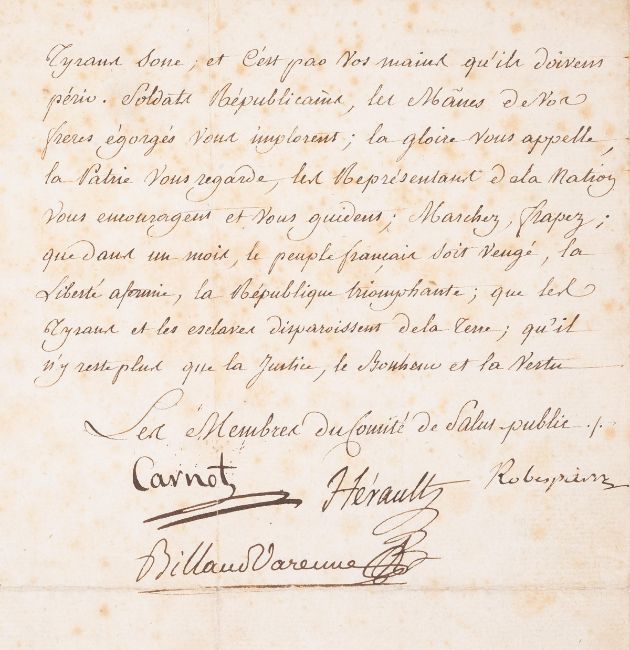 Tyrans sone; et C'est pas Vos mains qu'ils doivent
périr. Soldats Républicains, les Mânes de Vos
freres égorgés Vous implorent; la gloire Vous appelle,
la Patrie Vous regarde, les Représentans de la Nation
Vous encouragent et Vous guident; Marchez, frapez;
que dans un mois, le peuple français soit Vengé, la
Liberté afermie, la République triomphante; que les
Tyrans et les esclaves disparoissent de la Terre; qu'il
n'y reste plus que la Justice, le Bonheur et la Vertu
Les Membres du Comité de Salut public ./.
Carnot Hérault Robespierre
Billaud Varenne